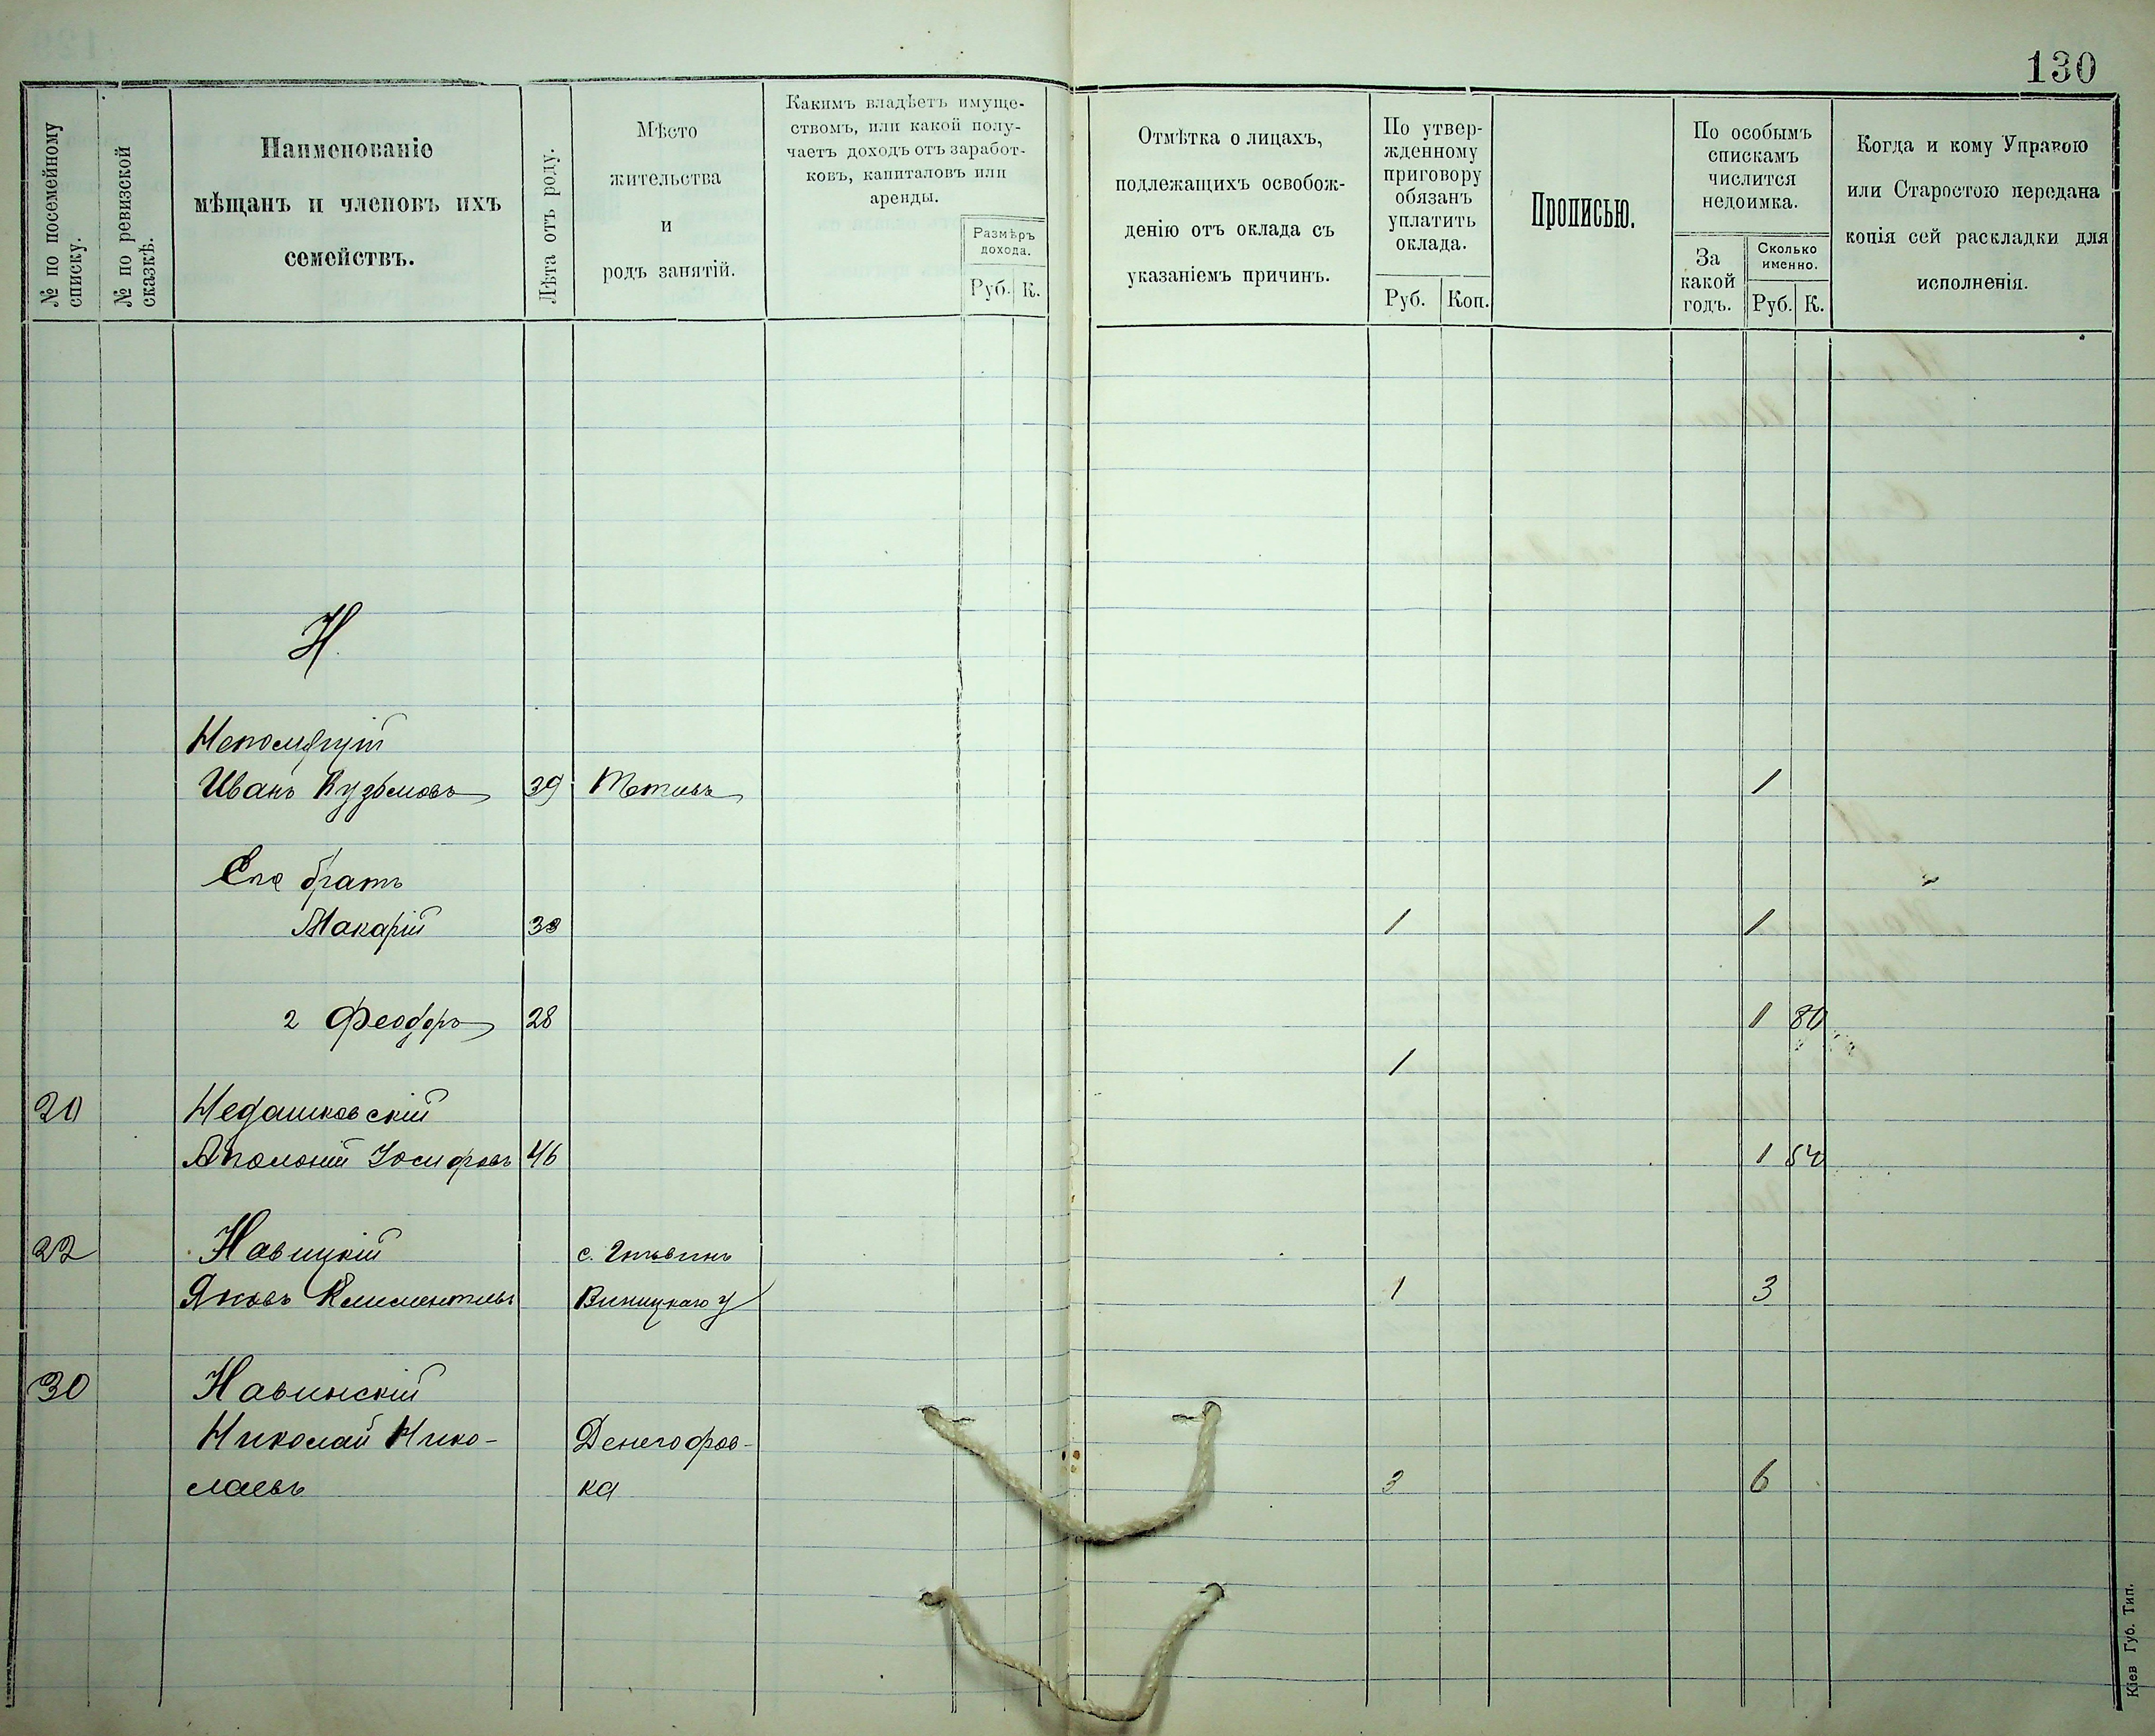 130
№ по посемейному
списку.
№ по ревизской
сказкѣ.
Наименованіе
мѣщанъ и членовъ ихъ
семействъ.
Лѣта отъ роду.
Мѣсто
жительства
и
родъ занятій.
Какимъ владѣетъ имуще-
ствомъ, или какой полу-
чаетъ доходъ отъ заработ-
ковъ, капиталовъ или
аренды.
Размѣръ
дохода.
Руб. К.
Отмѣтка о лицахъ,
подлежащихъ освобож-
денію отъ оклада съ
указаніемъ причинъ.
По утвер-
жденному
приговору
обязанъ
уплатить
оклада.
Руб. Коп.
Прописью.
По особымъ
спискамъ
числится
недоимка.
За
какой
годъ.
Сколько
именно.
Руб. К.
Когда и кому Управою
или Старостою передана
копія сей раскладки для
исполненія.
Н.
Иванъ Кузьмовъ 39 1
Его братъ
Макарій 33 1 1
2 Феодоръ 28 1 80
1
20 Недашковскій
Аполоній Іосифовъ 46 1 50
22 Навицкій с.
Яковъ Климентіевъ Виницкаго у 1 3
30 Навинскій
Николай Нико- Денегофов-
лаевъ ка 3 6
Кіев Губ. Тип.